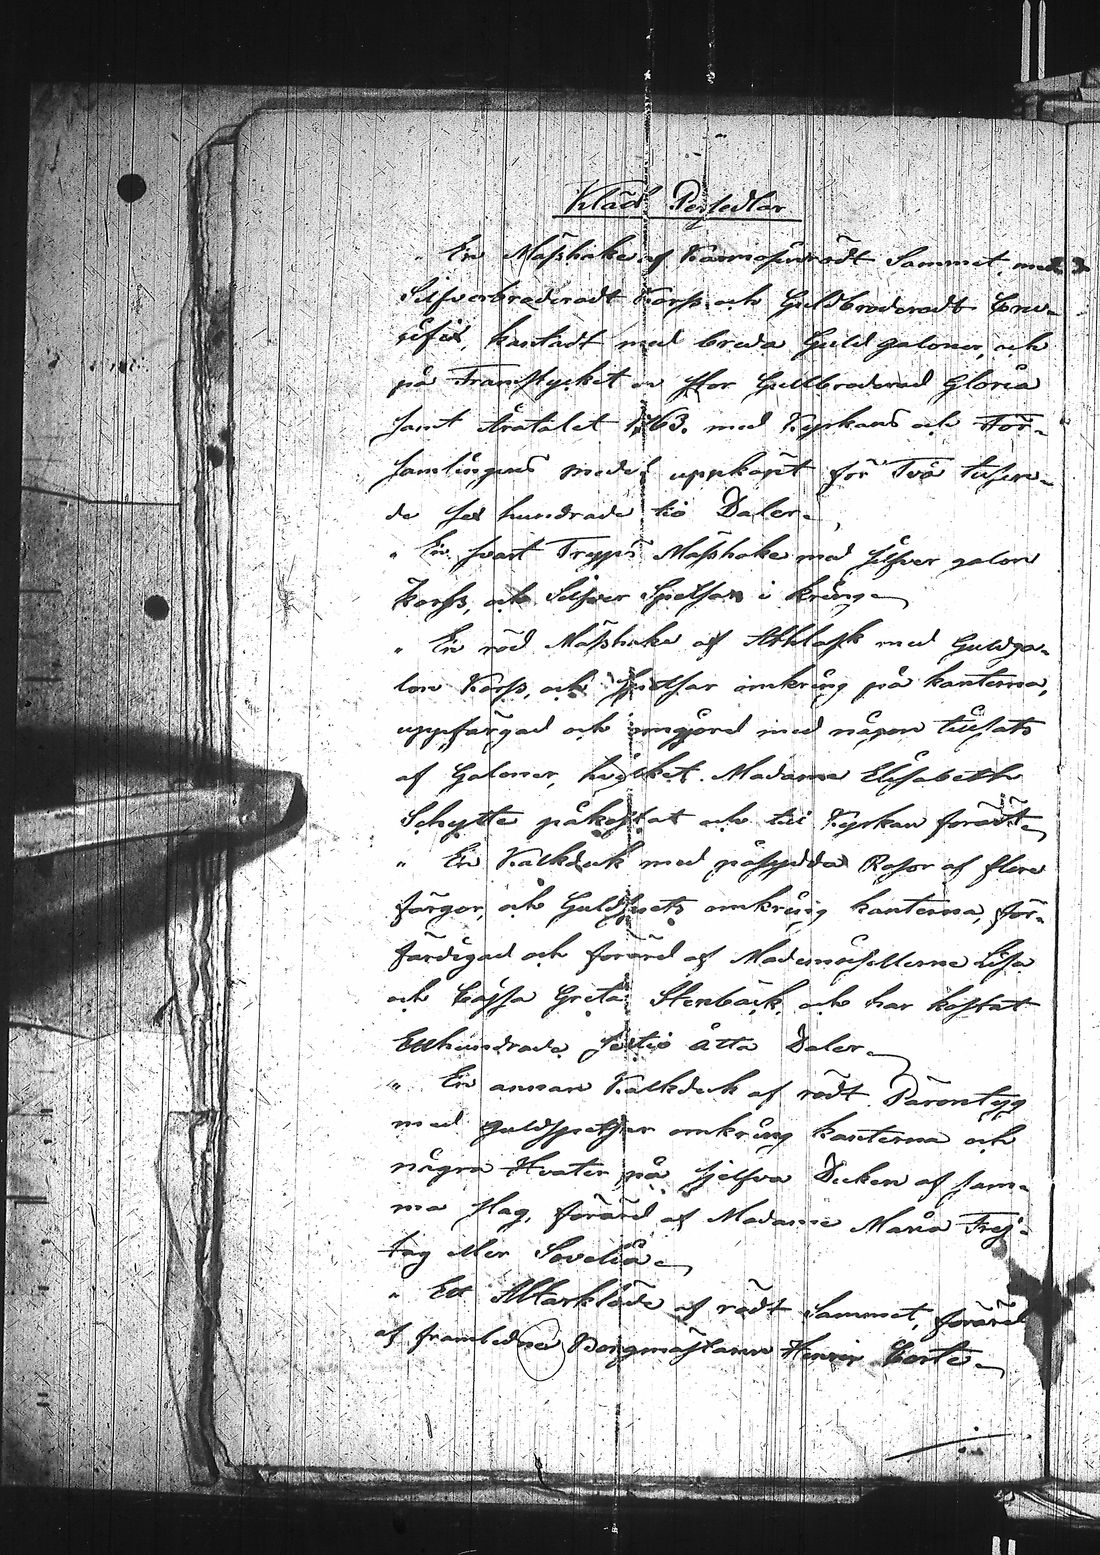 Kläd Persedlar
" En Mässhake af Karmosinrödt Sammet, med
Silfverbroderadt Korss och Guldbroderadt Cru-
cifix, kantadt med breda Guld galoner, och
på Framstycket en stor Gullbroderad Gloria
samt Åratalet 1763. med Kyrkans och För-
samlingens medel uppköpt för Två tusen-
de sex hundrade tio Daler.
" En svart Trypps Mässhake med silfver galon
Korss, och Silfver Spetsar i kring.
" En röd Mässhake af Athlask med Guldga-
lon Korss, och Spetsar omkring på kanterna,
uppfärgad och omgjord med någon tillsats
af Galoner, hvilket Madame Elisabeth
Schytte påkostat och till Kyrkan förärt.
" En Kalkduk med påsydda Rosor af flere
färgor, och Guldspets omkring kanterna, för-
färdigad och förärd af Mademoisellerne Lisa
och Cajsa Greta Stenbäck, och har kostat
Etthundrade sextio åtta Daler.
" En annan Kalkduk af rödt Pärontyg
med guldspetsar omkring kanterna och
några Hvaten på sjelfva Duken af sam-
ma slag, förärd af Madame Maria Frej-
tag eller Sovelia.
" Ett Altarkläde af rödt Sammet, förärd
af framledne Borgmästaren Henrir Corte.